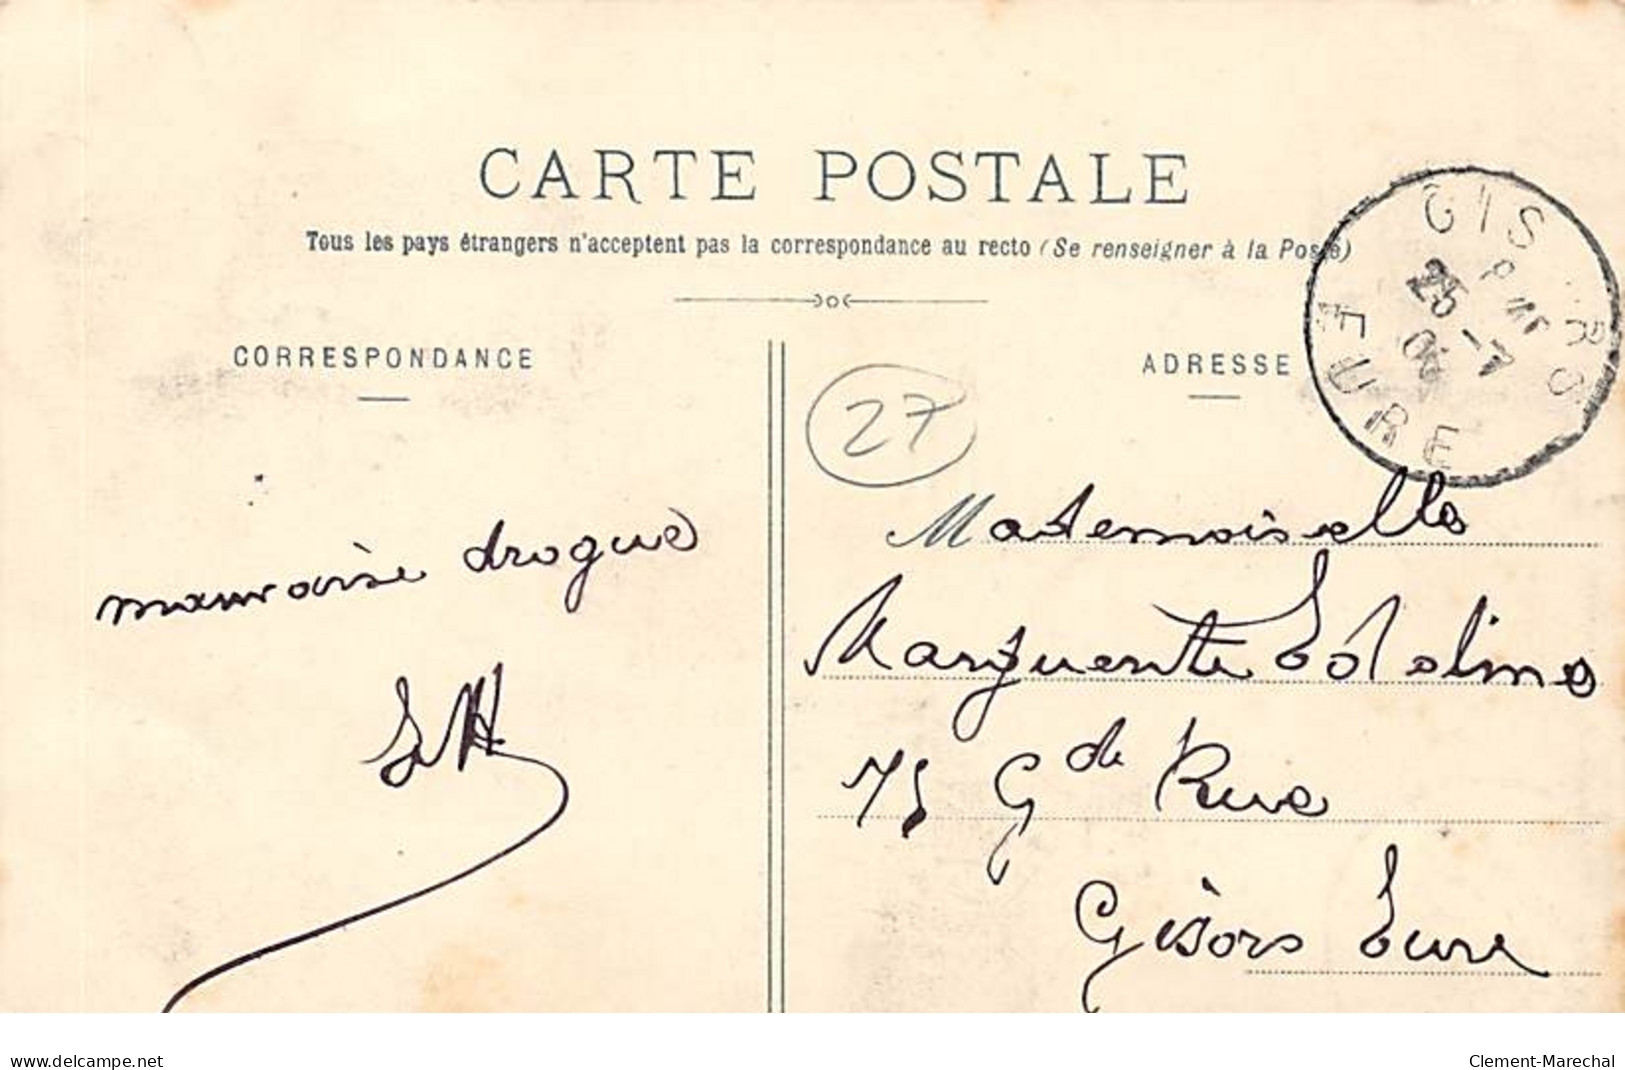 CARTE POSTALE
Tous les pays étrangers n'acceptent pas la correspondance au recto (Se renseigner à la Poste)
CORRESPONDANCE
ADRESSE
GISORS
25 - 7
06
EURE
27
mauvaise drogue
Mademoiselle
Marguerite Edeline
75 Gde Rue
Gisors Eure
www.delcampe.net
Clement-Marechal